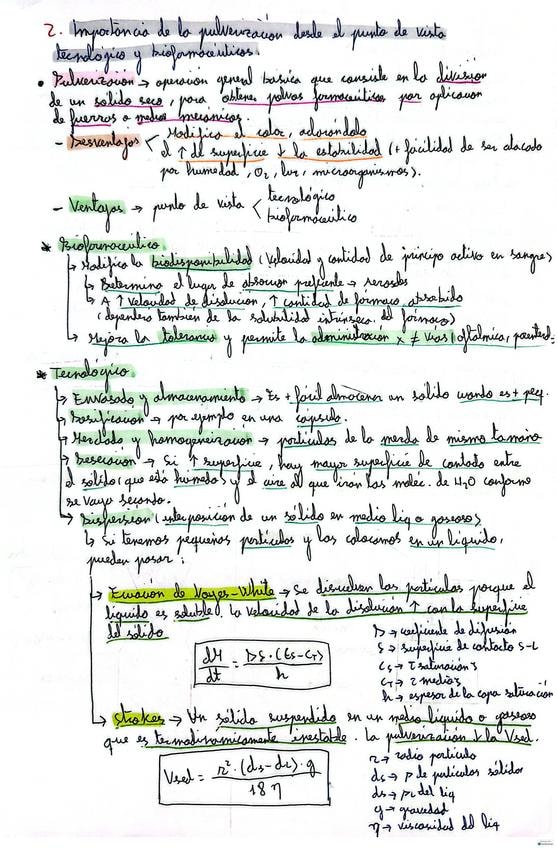 2. Importancia de la pulverización desde el punto de vista
tecnológico y biofarmacéuticos.
• Pulverización → operación general básica que consiste en la división
de un sólido seco, para obtener polvos farmacéuticos por aplicación
de fuerzas o medios mecánicos.
- Desventajas < Modifica el color, aclarándolo
el ↑ de superficie ↓ la estabilidad (+ facilidad de ser atacado
por humedad, O₂, luz, microorganismos).
- Ventajas → punto de vista < tecnológico
biofarmacéutico
* Biofarmacéutico
↳ Modifica la biodisponibilidad (velocidad y cantidad de principio activo en sangre)
↳ Determina el lugar de absorción preferente → aerosoles
↳ A ↑ velocidad de disolución, ↑ cantidad de fármaco absorbido
(dependerá también de la solubilidad intrínseca del fármaco)
↳ Mejora la tolerancia y permite la administración x ≠ vías (oftálmica, parenteral
* Tecnológico
↳ Envasado y almacenamiento → Es + fácil almacenar un sólido cuando es + peq.
↳ Dosificación → por ejemplo en una cápsula.
↳ Mezclado y homogeneización → partículas de la mezcla de mismo tamaño
↳ Desecación → Si ↑ superficie, hay mayor superficie de contacto entre
el sólido (que está húmedo) y el aire al que irán las moléc. de H₂O conforme
se vaya secando.
↳ Dispersión (interposición de un sólido en medio liq o gaseoso)
↳ Si tenemos pequeñas partículas y las colocamos en un líquido,
pueden pasar:
→ Ecuación de Noyes-White → Se disuelven las partículas porque el
líquido es soluble. La velocidad de la disolución ↑ con la superficie
del sólido
dM/dt = DS·(Cs-CT)/h
D → coeficiente de difusión
S → superficie de contacto S-L
Cs → τ saturación s
CT → τ medio s
h → espesor de la capa saturación
↳ Stokes → Un sólido suspendido en un medio líquido o gaseoso
que es termodinámicamente inestable. La pulverización ↓ la Vsed.
Vsed = r²·(ds-dl)·g/18η
r → radio partícula
ds → ρ de partículas sólidas
ds → ρ del liq
g → gravedad
η → viscosidad del liq